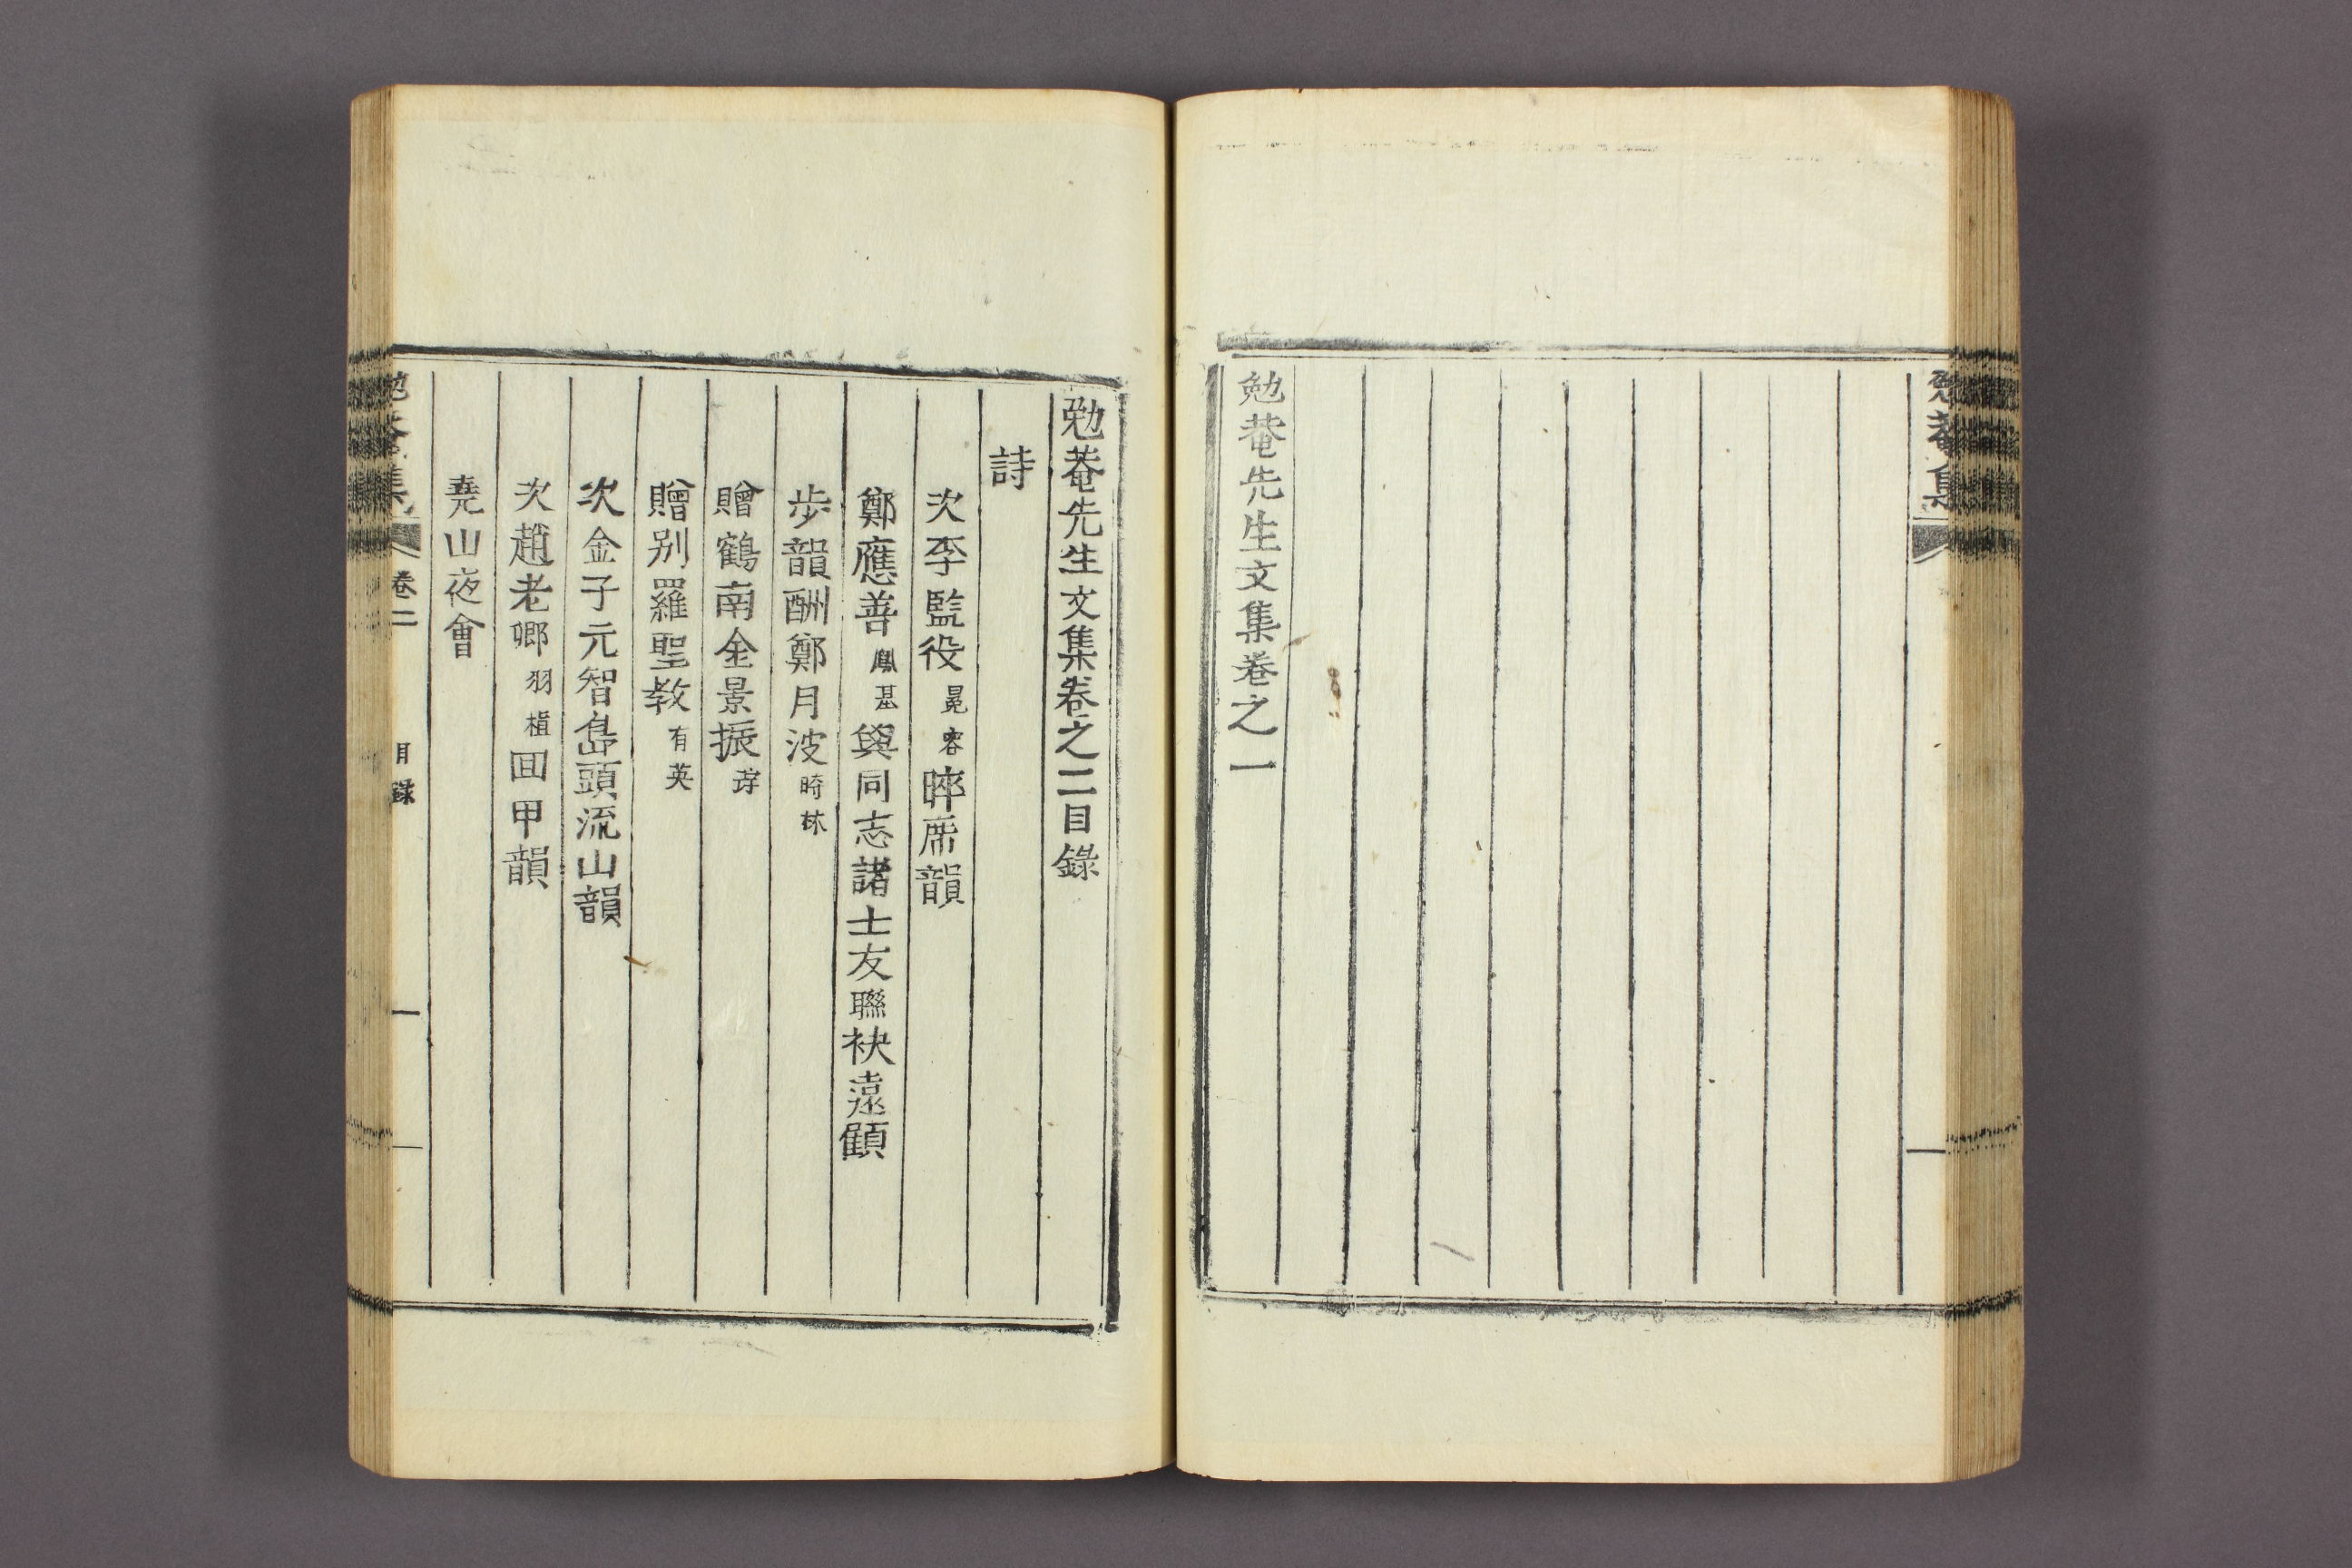 勉菴集
勉菴先生文集卷之一
勉菴先生文集卷之二目錄
詩
次李監役冕容晬席韻
鄭應善鳳基與同志諸士友聯袂遠顧
步韻酬鄭月波時林
贈鶴南金景振
贈別羅聖教有英
次金子元智島頭流山韻
次趙老卿羽植回甲韻
堯山夜會
勉菴集 卷二 目錄 一